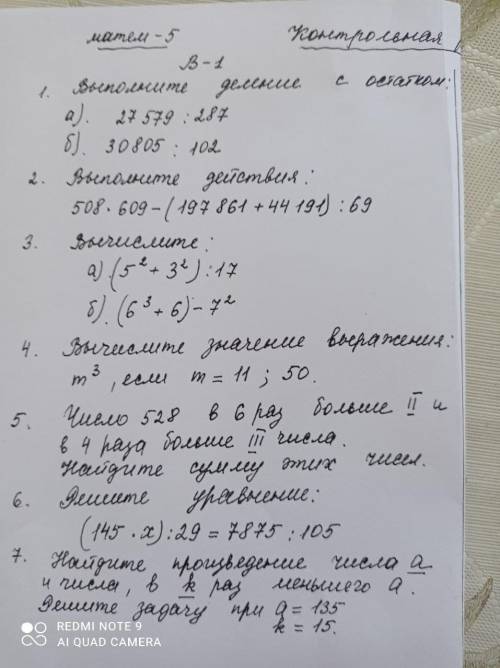 матем-5 Контрольная
В-1
1. Выполните деление с остатком:
а). 27579 : 287
б). 30805 : 102
2. Выполните действия:
508·609-(197861+44191):69
3. Вычислите:
а)(5²+3²):17
б).(6³+6)-7²
4. Вычислите значение выражения:
m³, если m=11; 50.
5. Число 528 в 6 раз больше II и
в 4 раза больше III числа.
Найдите сумму этих чисел.
6. Решите уравнение:
(145·x):29=7875:105
7. Найдите произведение числа a
и числа, в k раз меньшего a.
Решите задачу при a=135
k=15.
REDMI NOTE 9
AI QUAD CAMERA